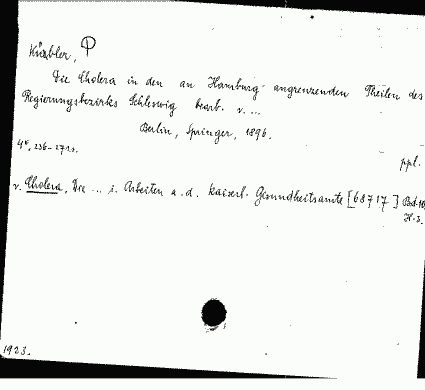 Kübler, P
Die Cholera in den an Hamburg angrenzenden Theilen des
Regierungsbezirks Schleswig bearb. v. ...
Berlin, Springer, 1896.
4°, 236-271 s.
ppl.
v. Cholera, Die ... i. Arbeiten a. d. kaiserl. Gesundheitsamte [68717] Bd. 10
H. 3.
1923.